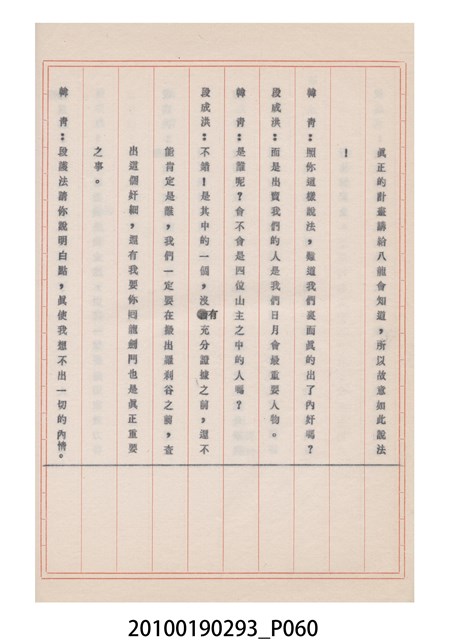 真正的計畫講給八龍會知道，所以故意如此說法
！
韓　青：照你這樣說法，難道我們裏面真的出了內奸嗎？
段成洪：而是出賣我們的人是我們日月會最重要人物。
韓　青：是誰呢？會不會是四位山主之中的人嗎？
段成洪：不錯！是其中的一個，沒有充分證據之前，還不
能肯定是誰，我們一定要在撤出羅刹谷之前，查
出這個奸細，還有我要你回龍劍門也是真正重要
之事。
韓　青：段護法請你說明白點，真使我想不出一切的內情。
20100190293_P060